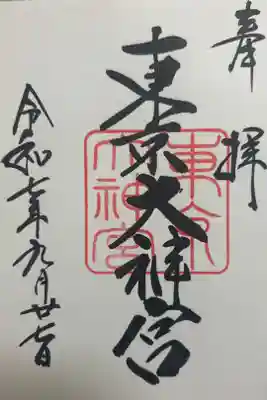 奉拝
東京大神宮
東京大神宮
令和七年九月廿七日